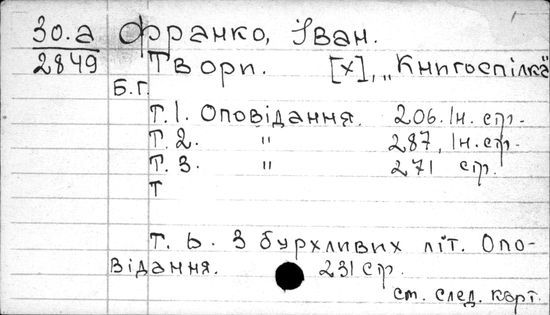 30.а Франко, Іван.
2849 Твори. [х], „Книгоспілка"
Б.Г.
Т. 1. Оповідання. 206. Ін. стр.
Т. 2. " 287, Ін. стр.
Т. 3. " 271 стр.
Т
Т. 6. З бурхливих літ. Опо-
відання. 231 стр.
см. след. карт.